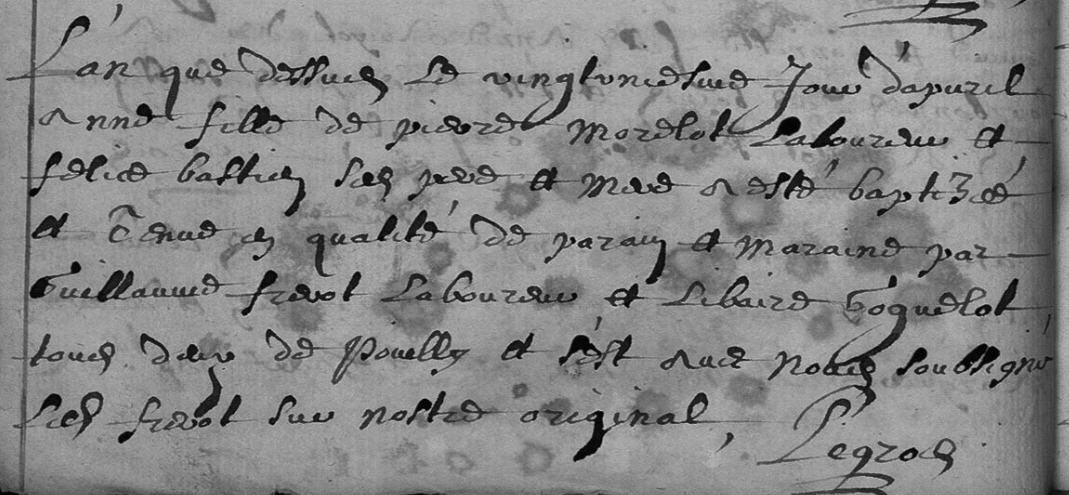 L'an que dessus le vingtuniesme Jour d'apuril
Anne fille de pierre Morelot Laboureur et
felice bastien ses pere et mere a esté baptizée
et tenue en qualité de parain et maraine par
Guillaume frerot Laboureur et Libaire Goguelot
tous deux de Pouilly et s'est avec nous soubsigné
led frerot sur nostre original,
Legros